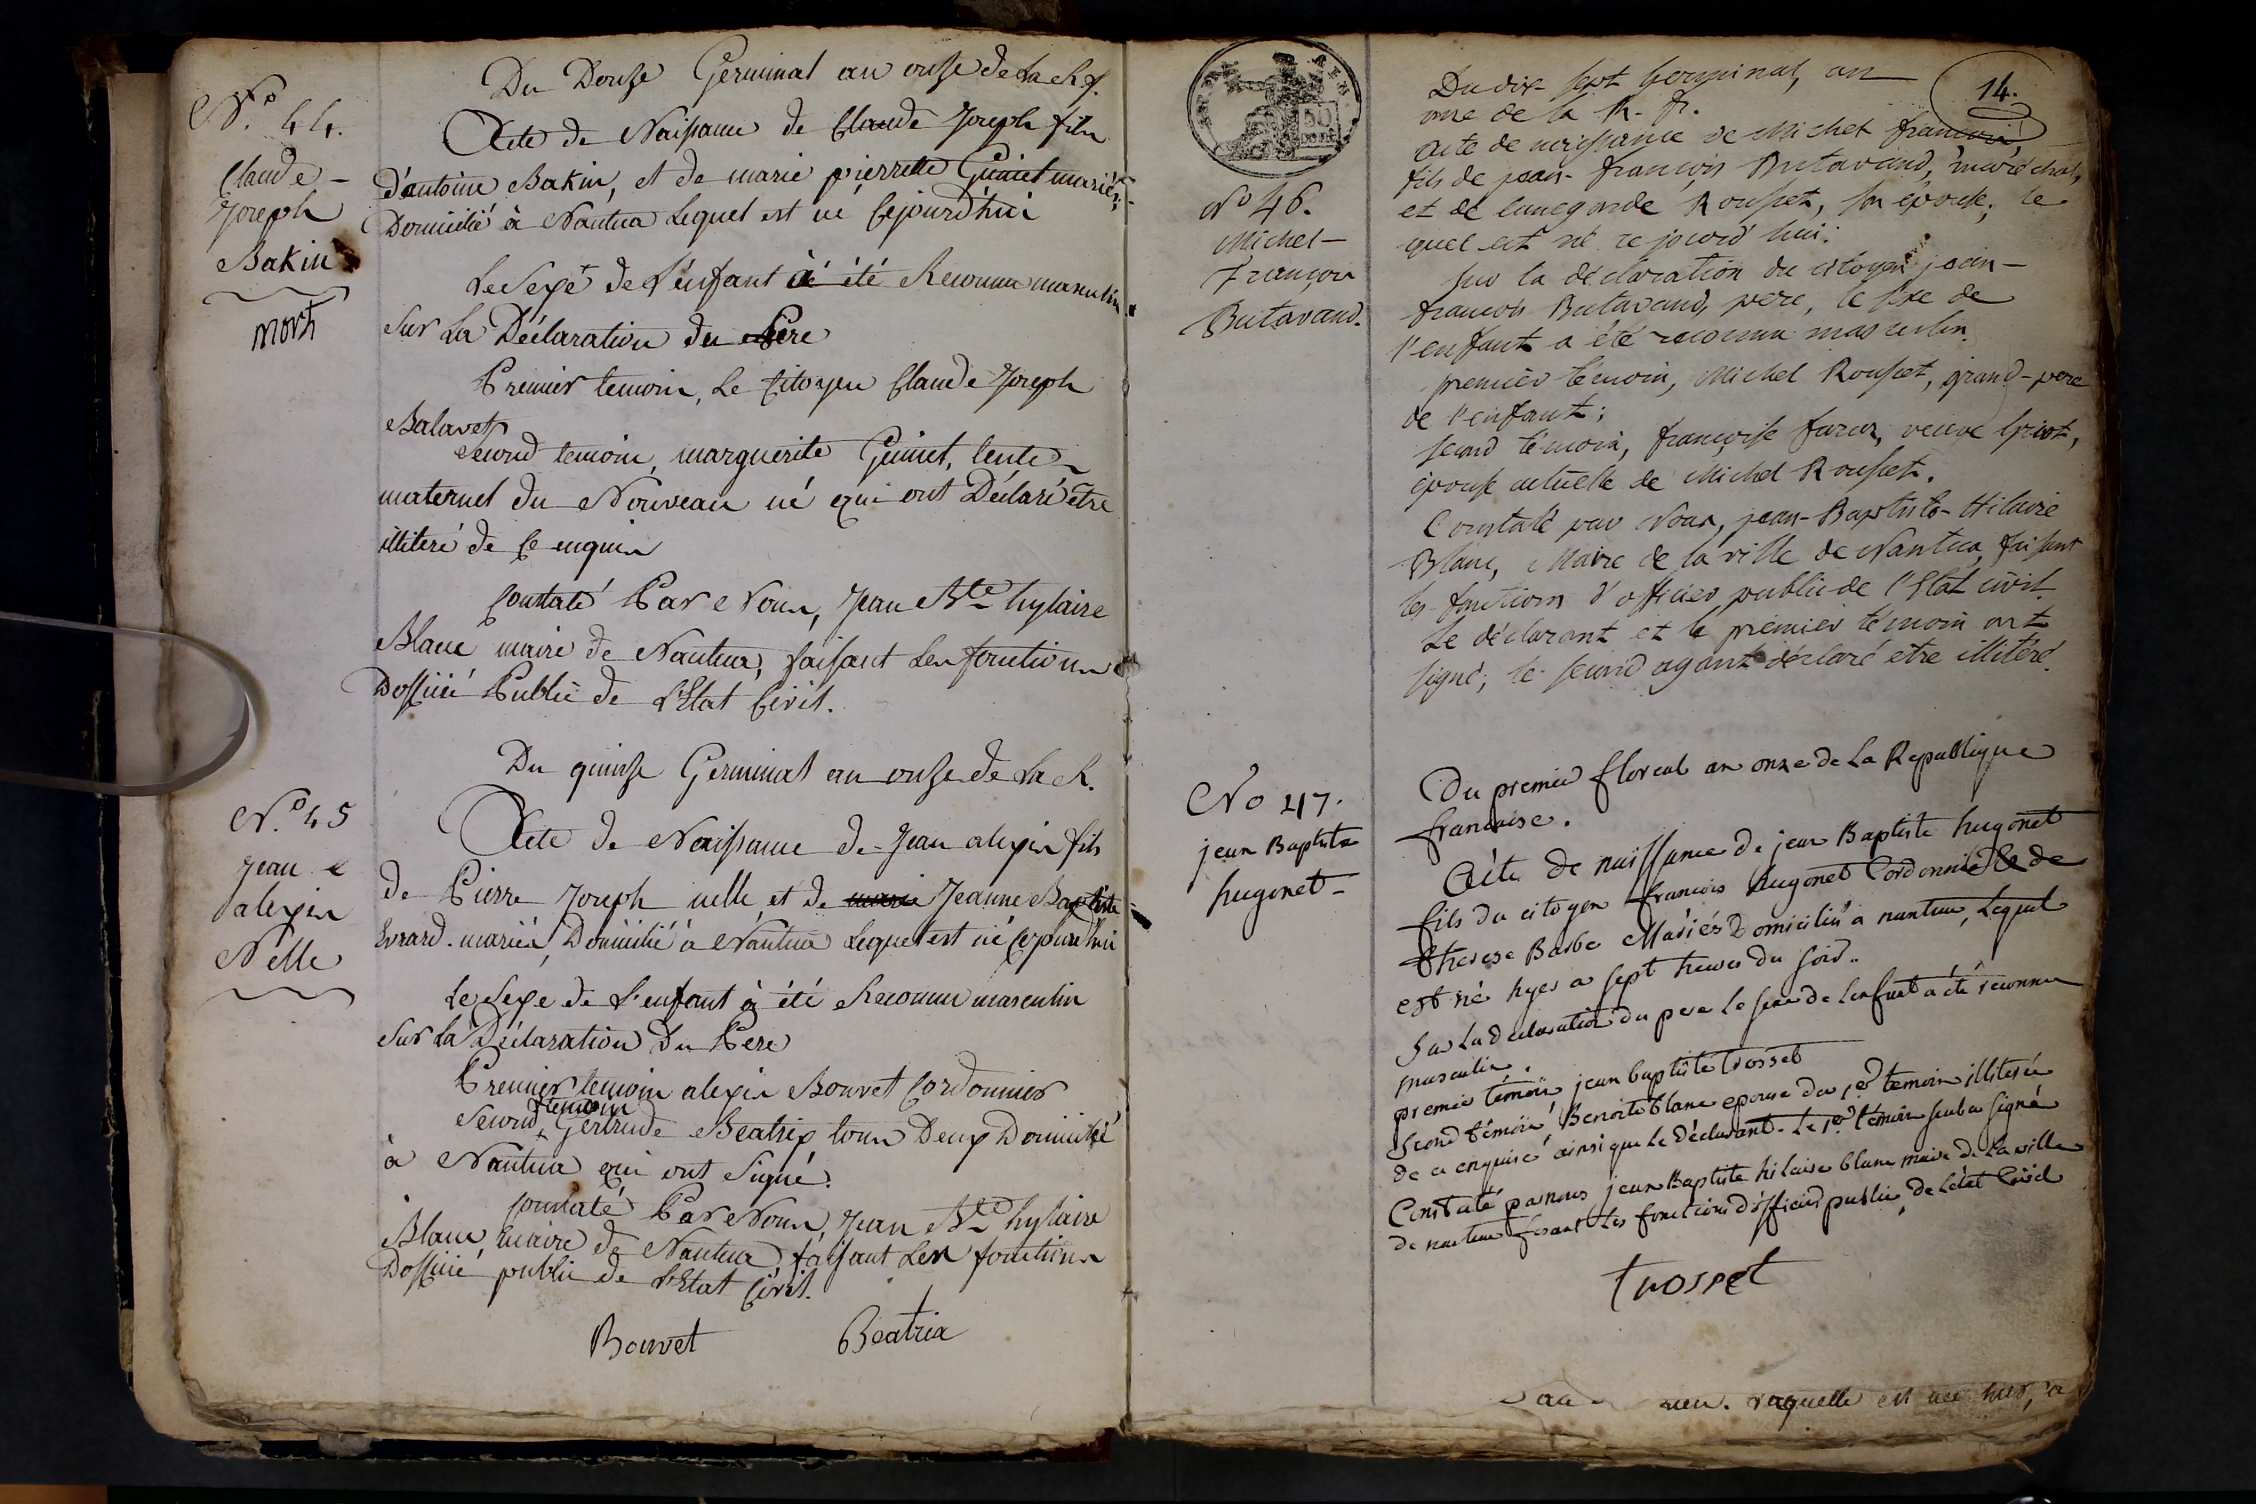 N.° 44.
Claude-
Joseph
Bakin
mort
Du Douze Germinal an onze de La R. f.
Acte de Naissance de Claude Joseph fils
d'antoine Bakin, et de marie pierrette Guinet mariés,
Domicilié à Nantua Lequel est né Cejourd'hui
Le Sexe de L'enfant à été Reconnu masculin
Sur La Déclaration du Pere
Premier temoin, Le Citoyen Claude Joseph
Balavet
Second temoin, marguerite Guinet, tente
maternel du Nouveau né qui ont Déclaré être
illiteré de Ce enquis
Constaté Par Nous, Jean Bte hylaire
Blanc maire de Nantua, faisant Les fonctions
Dofficié Public de L'Etat Civil.
N.° 45
Jean
alexis
Nelle
Du quinze Germinal an onze de La R.
Acte de Naissance de Jean alexis fils
de Pierre Joseph nelle, et de marie Jeanne Baptiste
Evrard. mariés, Domicilié à Nantua Lequel est né Cejourd'hui
Le Sexe de L'enfant à été Reconnu masculin
Sur La Déclaration Du Pere
Premier temoin alexis Bouvet Cordonnier
temoin
Second Gertrude Beatrix tous Deux Domicilié
à Nantua qui ont Signé.
Constaté Par Nous, Jean Bte hylaire
Blanc, maire de Nantua, faisant Les fonctions
Dofficié public de L'Etat Civil.
Bouvet Beatrix
14.
N° 46.
Michel-
François
Butavand.
Du dix-sept Germinal, an
onze de la R. fr.
acte de naissance de Michel françois,
fils de jean-françois Butavand, maréchal,
et de cunegonde Rousset, son épouse; le
quel est né cejourd'hui.
Sur la déclaration du citoyen jean-
françois Butavand, pere, le sexe de
l'enfant a été reconnu masculin.
premier témoin, Michel Rousset, grand-pere
de l'enfant;
second témoin, françoise veuve
épouse actuelle de Michel Rousset.
Constaté par Nous, jean-Baptiste-Hilaire
Blanc, Maire de la ville de Nantua, faisant
les fonctions d'officier public de l'Etat civil.
Le déclarant et le premier témoin ont
signé; le second ayant déclaré etre illitéré.
No 47.
jean Baptiste
hugonet-
Du premier floreal an onze de La Republique
francaise.
Acte de naissance de jean Baptiste hugonet
fils du citoyen francois hugonet Cordonnié & de
therese Barbe Mariés Domicilié à nantua, Lequel
est né hyer a sept heures du soir..
Sur La declaration du pere Le sexe de Lenfant a été reconnu
masculin.
premier témoin jean baptiste trosset
second témoin Benoite blanc epouse du 1er temoin illiterée
de ce enquise ainsi que Le déclarant. Le 1er témoin seul a signé
Constaté par nous jean Baptiste hilaire blanc maire de La ville
de nantua fesant Les fonctions d'officier public de Létat Civil
trosset
raquelle est née hier, a